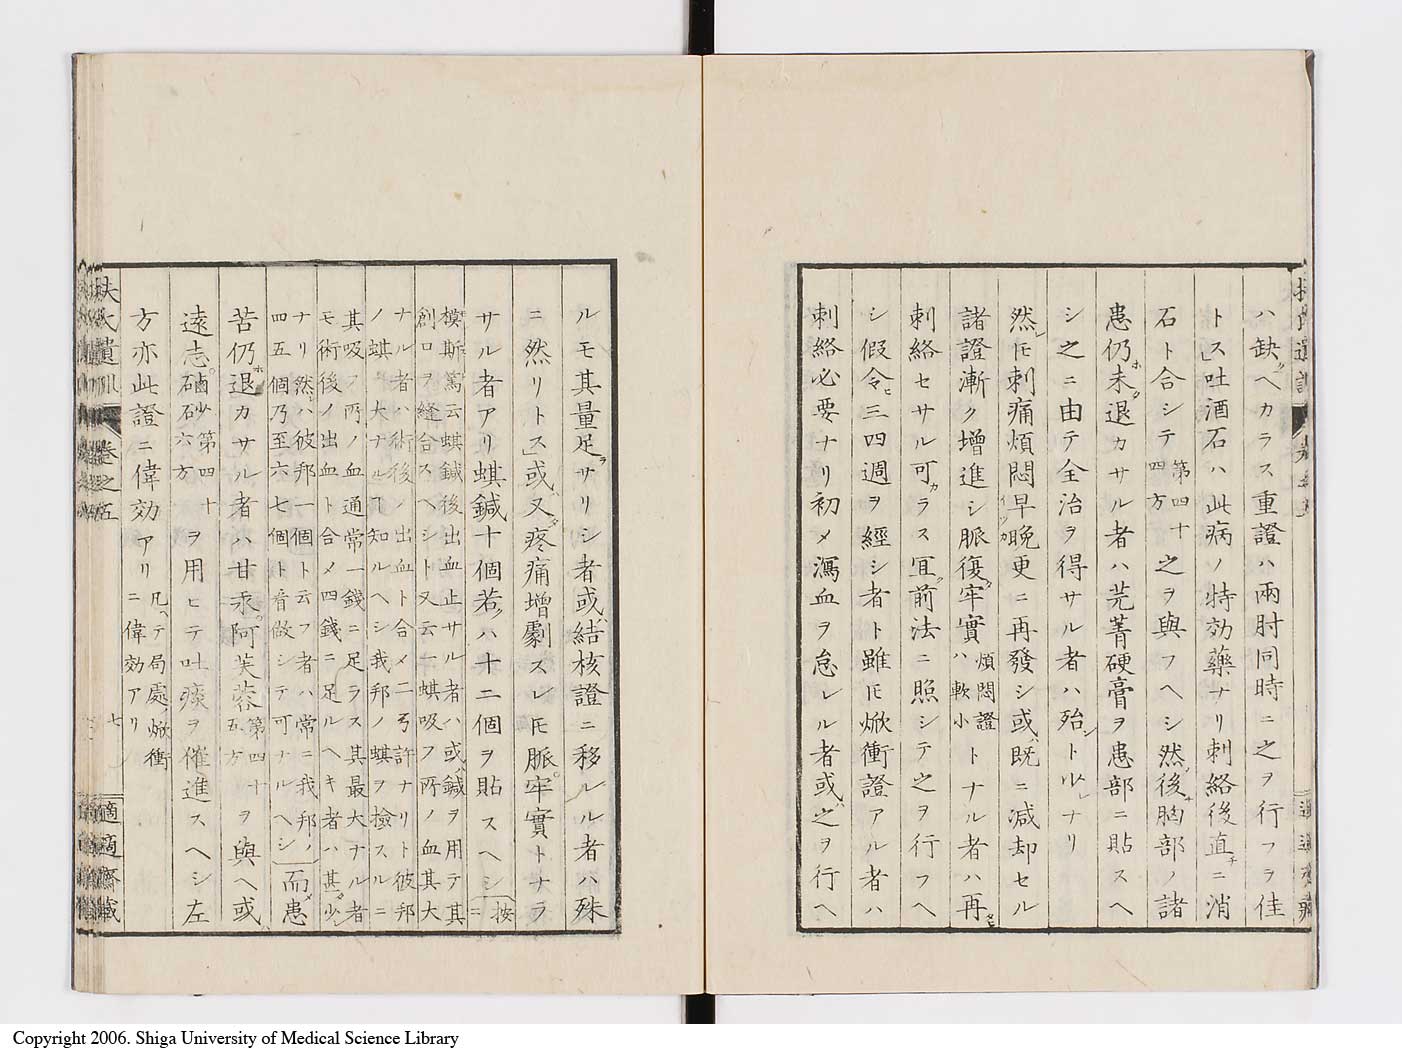 ハ缺クヘカラス重證ハ兩肘同時ニ之ヲ行フヲ佳
トス」吐酒石ハ此病ノ特効藥ナリ刺絡後直チニ消
石ト合シテ第四十四方之ヲ與フヘシ然ノ後チ胸部ノ諸
患仍ホ未タ退カサル者ハ芫菁硬膏ヲ患部ニ貼スヘ
シ之ニ由テ全治ヲ得サル者ハ殆ントレナリ
然レ𪜈刺痛煩悶早晩イツカ更ニ再發シ或ハ既ニ減却セル
諸證漸ク増進シ脈復タ牢實煩悶證ハ軟小トナル者ハ再ヒ
刺絡セサル可カラス宜ク前法ニ照シテ之ヲ行フヘ
シ假令ヒ三四週ヲ經シ者ト雖𪜈焮衝證アル者ハ
刺絡必要ナリ初メ瀉血ヲ怠レル者或ハ之ヲ行ヘ
ルモ其量足ラサリシ者或ハ結核證ニ移ルル者ハ殊
ニ然リトス」或ハ又タ疼痛增劇スレ𪜈脈牢實トナラ
サル者アリ蜞鍼十個若クハ十二個ヲ貼スヘシ按ニ
模斯篤云蜞鍼後出血止サル者ハ或ハ鍼ヲ用テ其
創口ヲ縫合スヘシト又云一蜞吸フ所ノ血其大
ナル者ハ術後ノ出血ト合メ二ヲ許ナリト彼邦
ノ蜞ノ大ナルヿ知ルヘシ我邦ノ蜞ヲ檢スルニ
其吸フ所ノ血通常一錢ニ足ラス其最大ナル者
モ術後ノ出血ト合メ四錢ニ足ルヘキ者ハ甚タ少
ナリ然レハ彼邦一個ト云フ者ハ常ニ我邦ノ
四五個乃至六七個ト看做シテ可ナルヘシ而メ患
苦仍ホ退カサル者ハ甘汞。阿芙蓉第四十五方ヲ與ヘ或
遠志。磠砂第四十六方ヲ用ヒテ吐痰ヲ催進スヘシ左
方亦此證ニ偉効アリ凡ヘテ局處焮衝ニ偉効アリ
扶氏遺訓 卷之五 七 適適齋藏